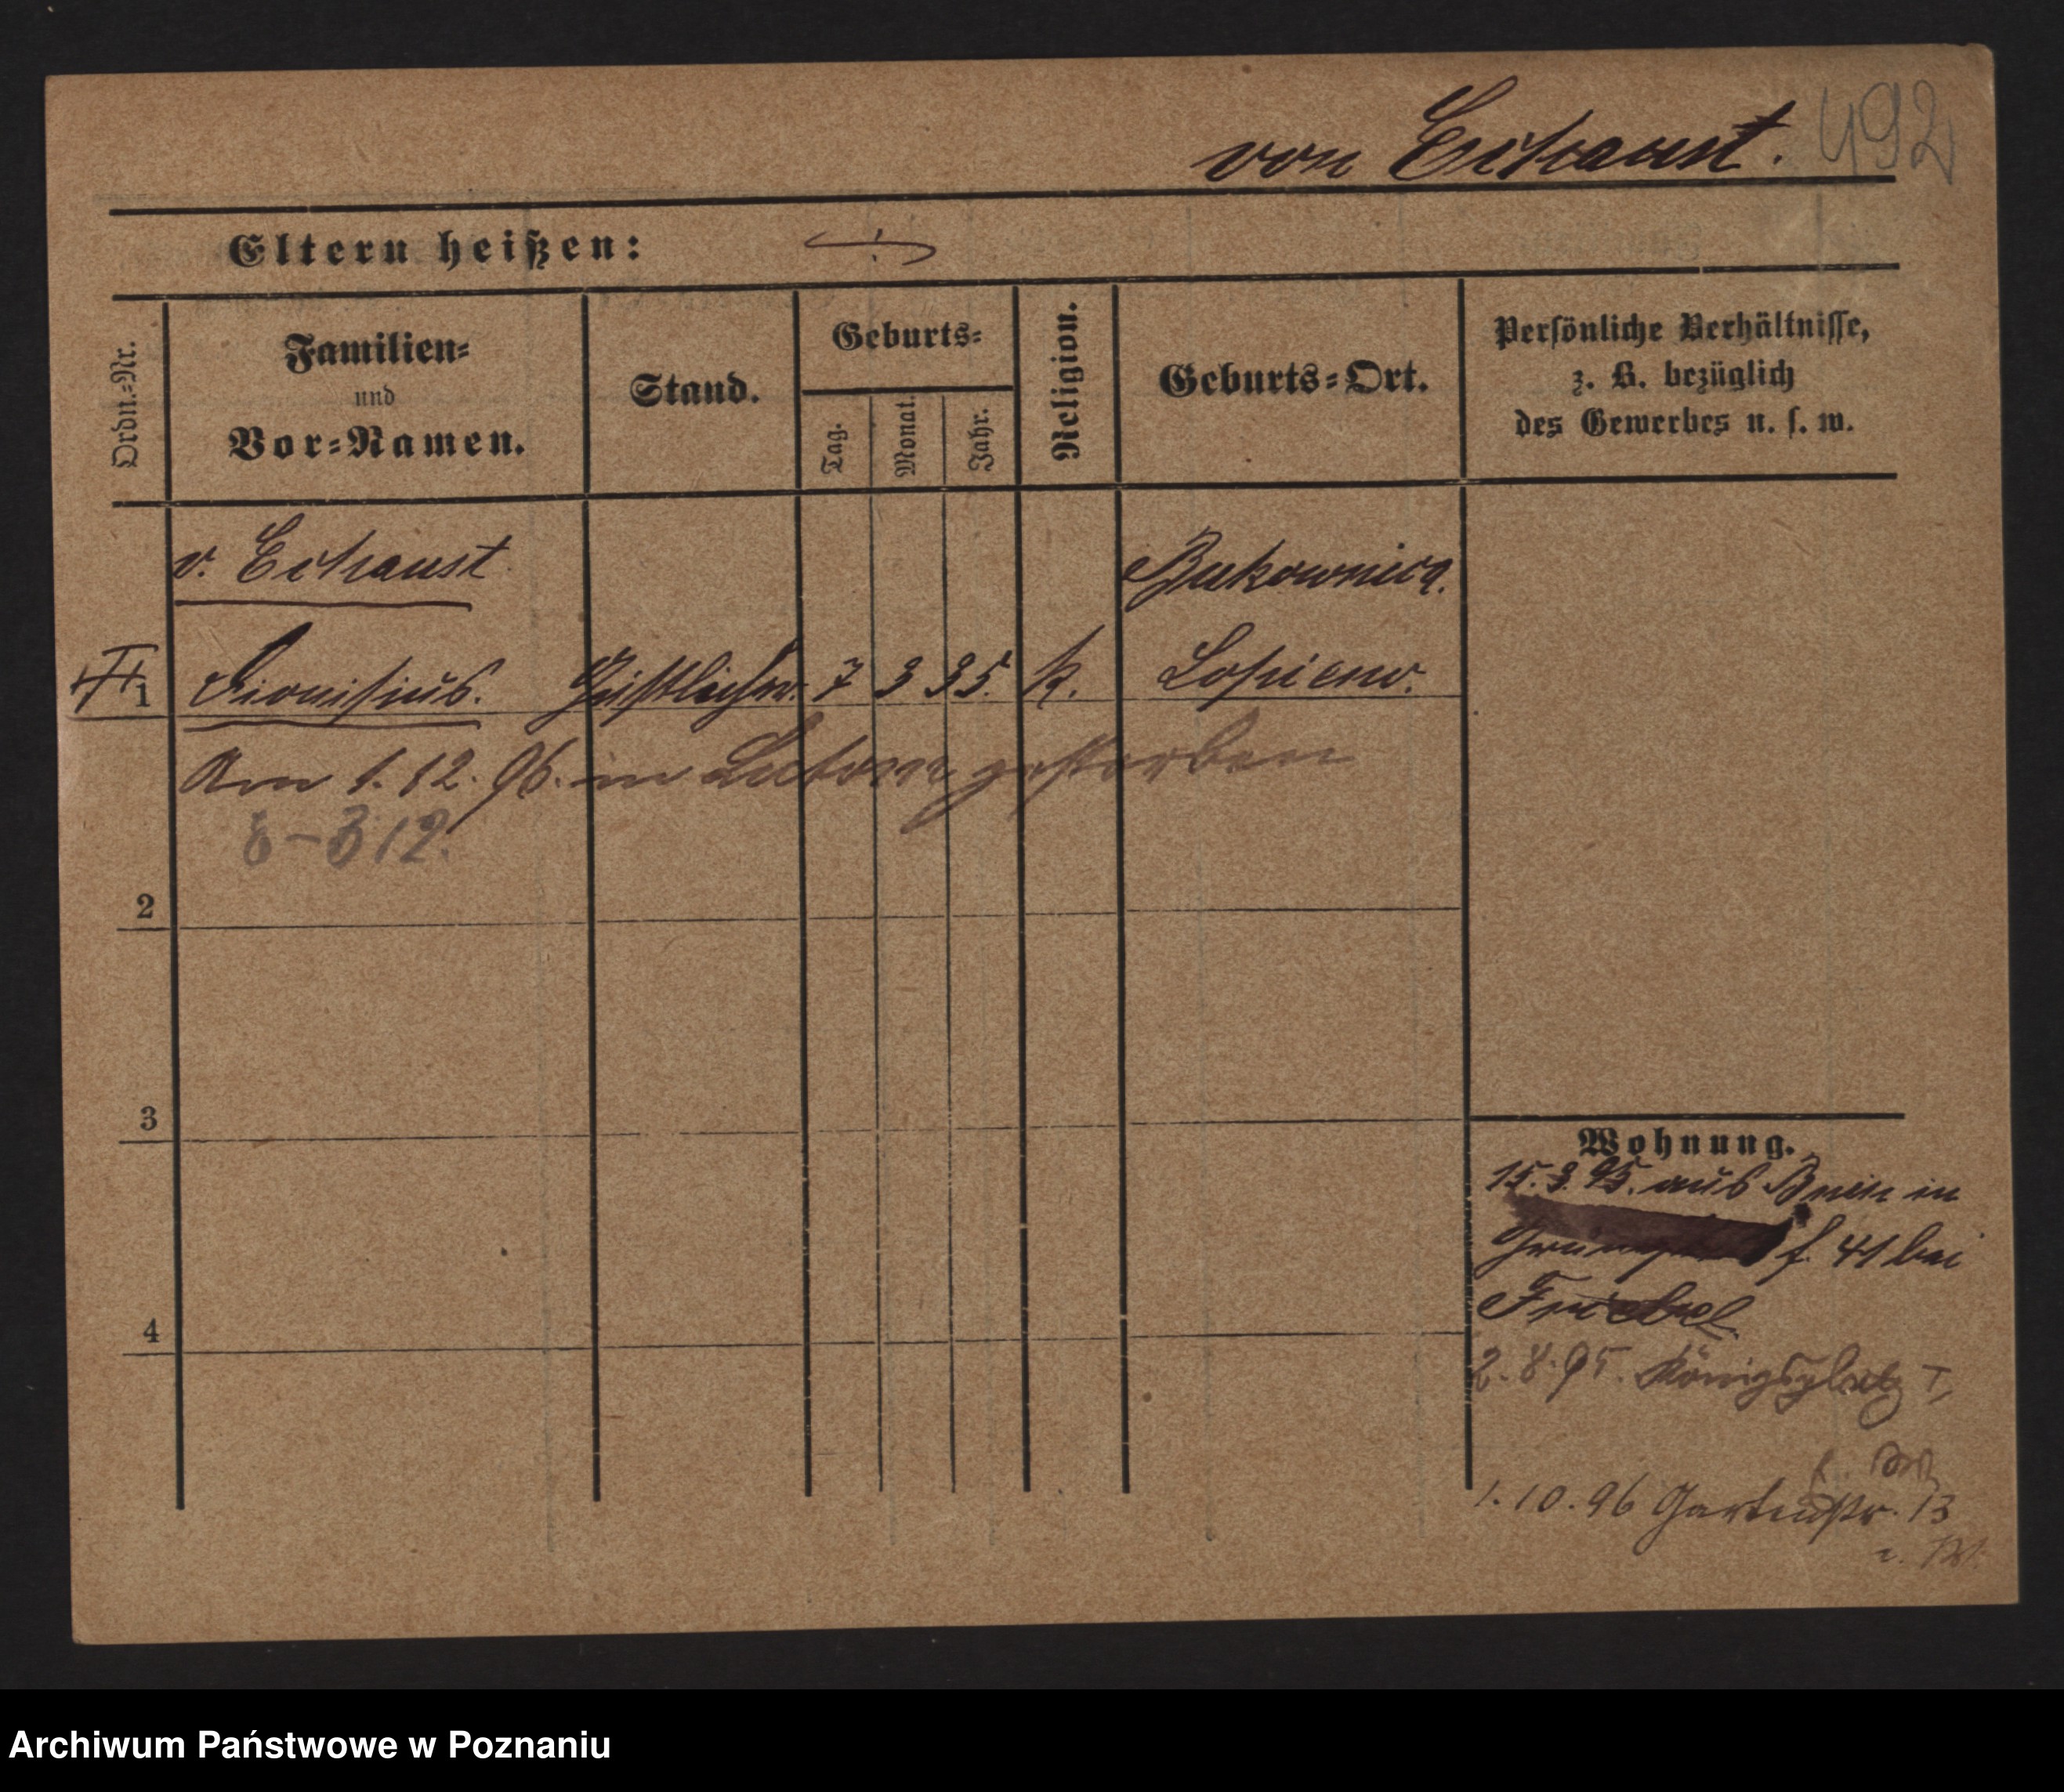 von Eckaust. 492
Eltern heißen: ÷
Ordn.-Nr.
Familien-
und
Vor-Namen.
Stand.
Geburts-
Tag.
Monat.
Jahr.
Religion.
Geburts-Ort.
Persönliche Verhältnisse,
z. B. bezüglich
des Gewerbes u. s. w.
v. Eckaust Bukownica.
1 Dionisius. Geistlicher. 7 3 35. k. Lopienno.
Am 1. 12. 96. in Lutom gestorben
8-812.
2
3
4
Wohnung.
15. 3. 95. aus Bnin in
41 bei
Friebel
2. 8. 95. Königsplatz I,
1. 10. 96 Gartenstr. 13